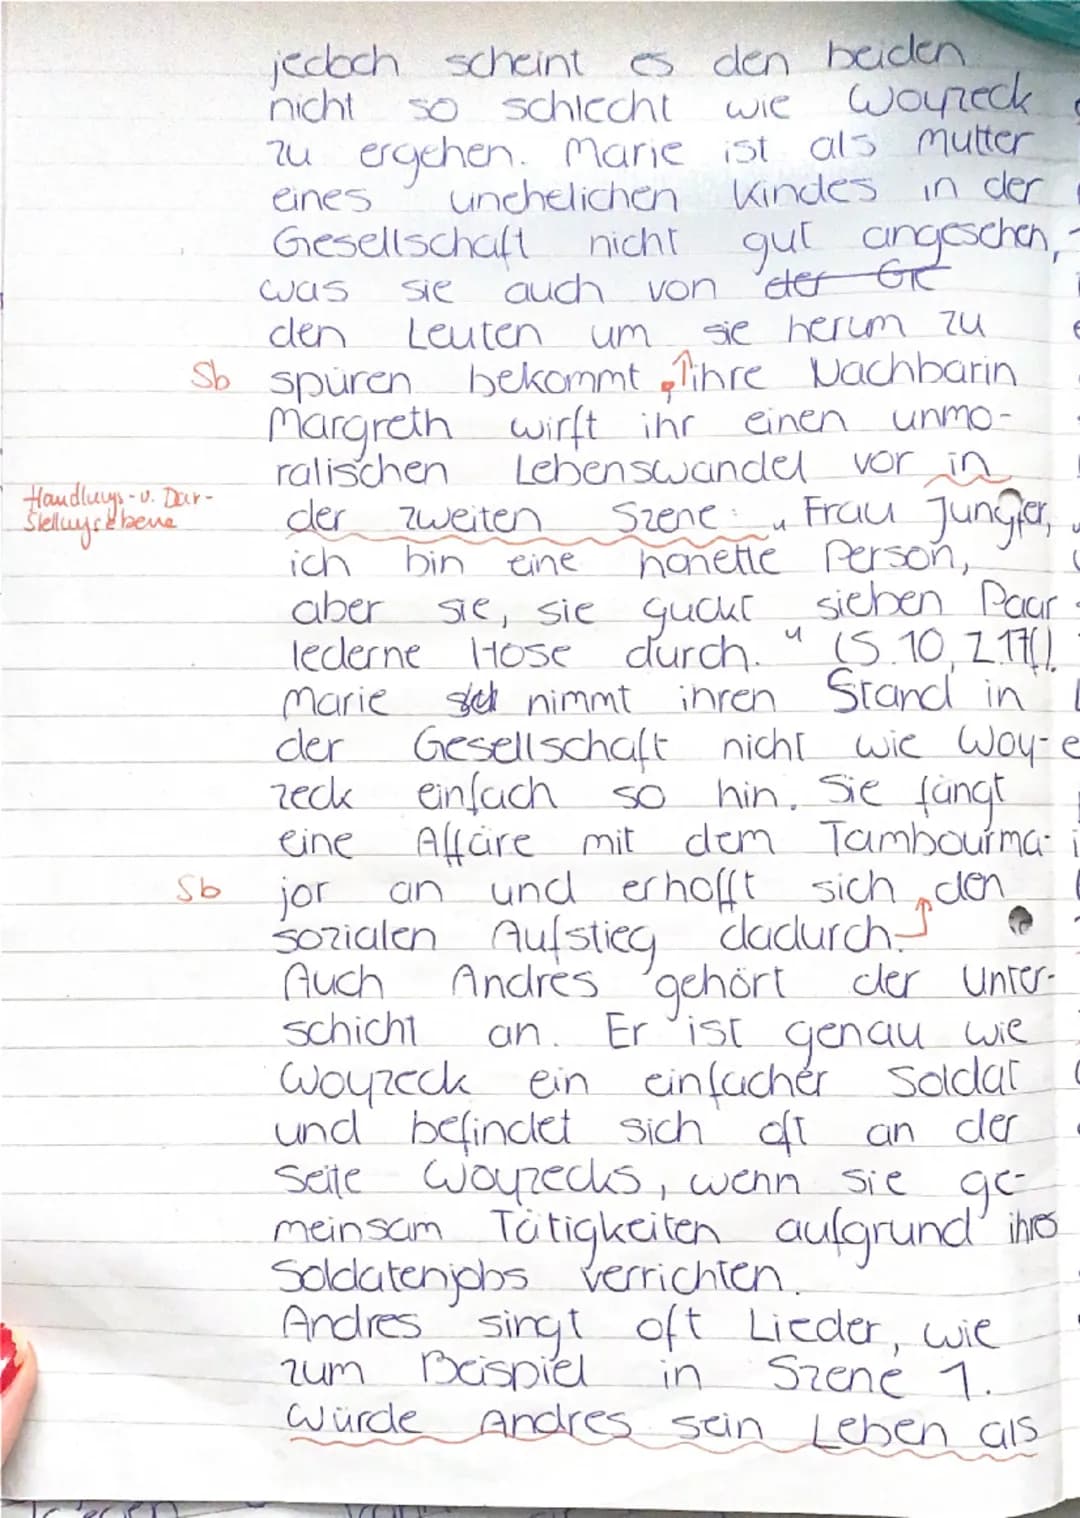 jedoch scheint es den beiden
nicht so schlecht wie Woyzeck
zu ergehen. Marie ist als Mutter
eines unehelichen Kindes in der
Gesellschaft nicht gut angesehen,
was sie auch von der Ge
den Leuten um sie herum zu
Sb spüren bekommt. ihre Nachbarin
Margreth wirft ihr einen unmo-
ralischen Lebenswandel vor in
Handlungs- u. Dar-
stellungsebene
der zweiten Szene: „Frau Jungfer,
ich bin eine honette Person,
aber sie, sie guckt sieben Paar
lederne Hose durch." (S. 10, Z. 17f).
Marie nimmt ihren Stand in
der Gesellschaft nicht wie Woy-
zeck einfach so hin. Sie fängt
eine Affäre mit dem Tambourma-
Sb jor an und erhofft sich den
sozialen Aufstieg dadurch.
Auch Andres gehört der Unter-
schicht an. Er ist genau wie
Woyzeck ein einfacher Soldat
und befindet sich oft an der
Seite Woyzecks, wenn sie ge-
meinsam Tätigkeiten aufgrund ihres
Soldatenjobs verrichten.
Andres singt oft Lieder, wie
zum Beispiel in Szene 1.
Würde Andres sein Leben als